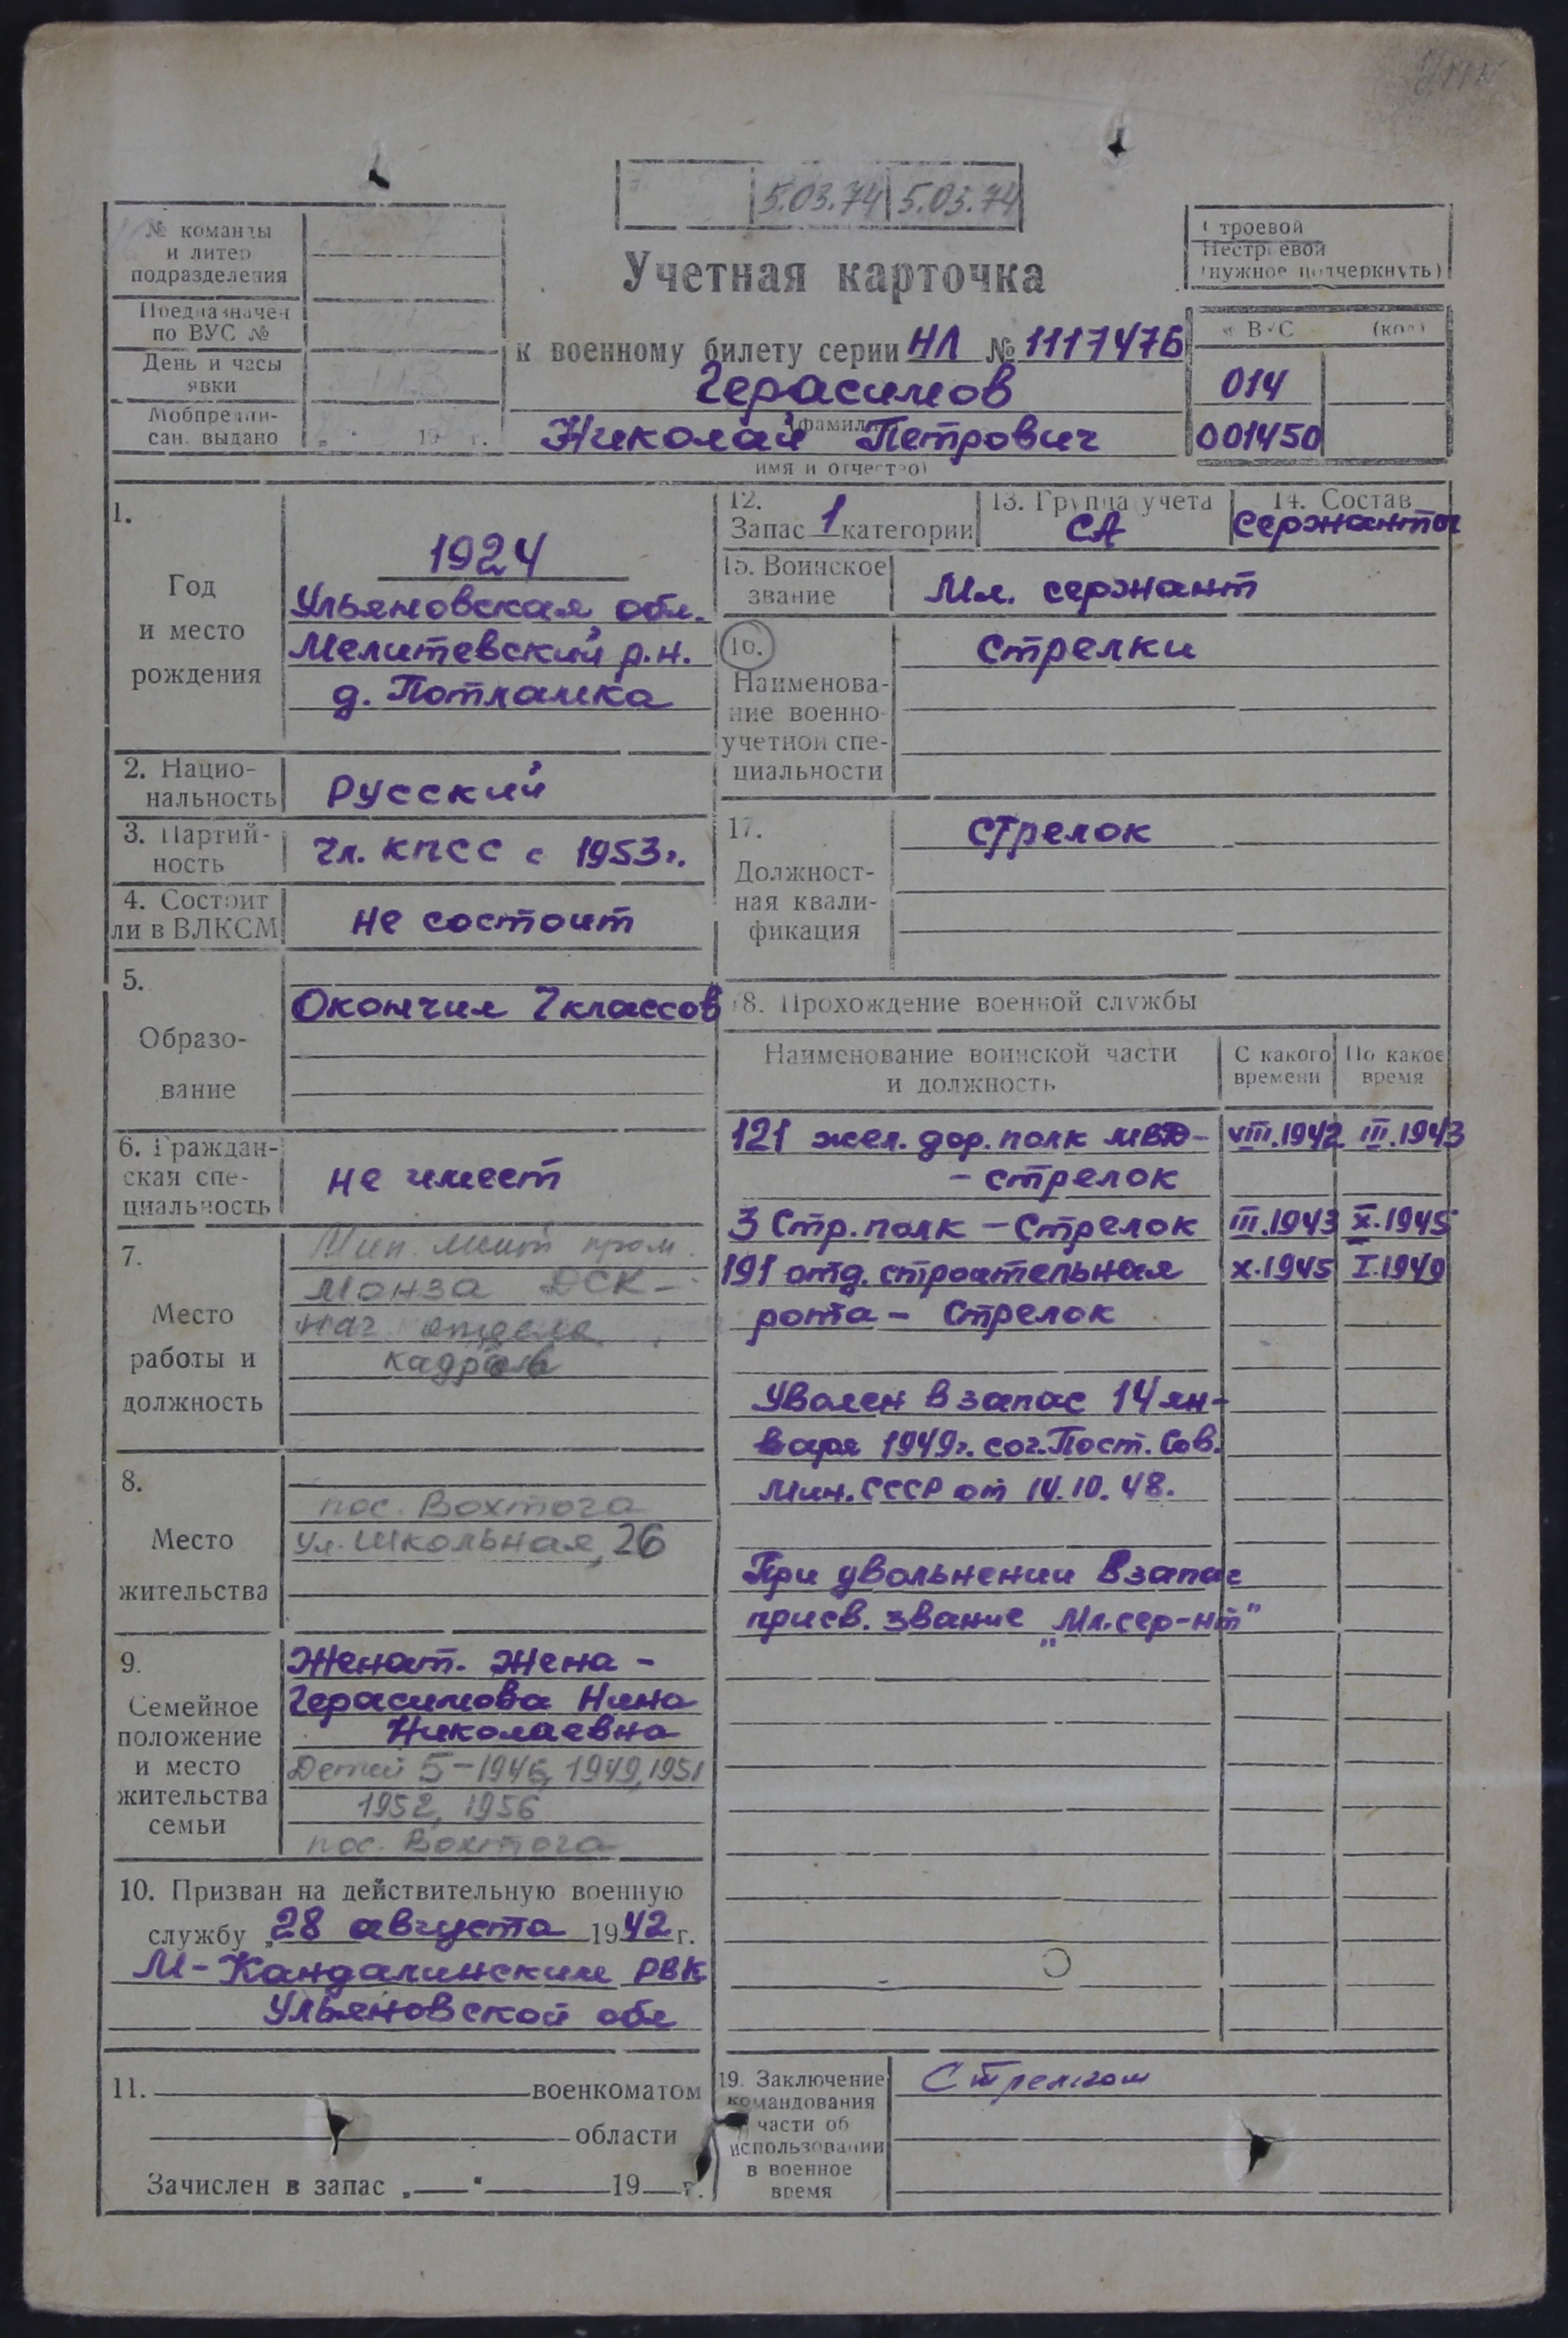 5.03.74 5.03.74
№ команды
и литер
подразделения
Предназначен
по ВУС №
День и часы
явки
Мобпредпи-
сан. выдано „ " 19 г.
Учетная карточка
к военному билету серии НЛ № 1117476
Герасимов
(фамилия
Николай Петрович
имя и отчество)
Строевой
Нестроевой
(нужное подчеркнуть)
ВУС (код)
014
001450
1.
Год
и место
рождения
1924
Ульяновская обл.
Мелитевский р.н.
д. Потламка
2. Нацио-
нальность
Русский
3. Партий-
ность
Чл. КПСС с 1953г.
4. Состоит
ли в ВЛКСМ
Не состоит
5.
Образо-
вание
Окончил 7 классов
6. Граждан-
ская спе-
циальность
не имеет
7.
Место
работы и
должность
Мин. пром.
Монза ДСК-
нач отдела
кадров
8.
Место
жительства
пос. Вохтога
ул. Школьная, 26
9.
Семейное
положение
и место
жительства
семьи
Женат. Жена -
Герасимова Нина
Николаевна
Детей 5-1946, 1949, 1951
1952, 1956
пос. Вохтога
10. Призван на действительную военную
службу „28 августа 1942 г.
М-Кандалинским РВК
Ульяновской обл
11. военкоматом
области
Зачислен в запас „ " 19 г.
12.
Запас 1 категории
13. Группа учета
СА
14. Состав
Сержанты
15. Воинское
звание
Мл. сержант
16.
Наименова-
ние военно-
учетной спе-
циальности
Стрелки
17.
Должност-
ная квали-
фикация
Стрелок
18. Прохождение военной службы
Наименование воинской части
и должность
С какого
времени
По какое
время
121 жел. дор. полк МВД- VIII.1942 III.1943
- стрелок
3 Стр. полк - Стрелок III.1943 X.1945
191 отд. строительная X.1945 I.1949
рота - Стрелок
Уволен в запас 14 ян-
варя 1949г. сог. Пост. Сов.
Мин. СССР от 14.10.48.
При увольнении в запас
присв. звание „Мл. сер-нт"
19. Заключение
командования
части об
использовании
в военное
время
Стрелком